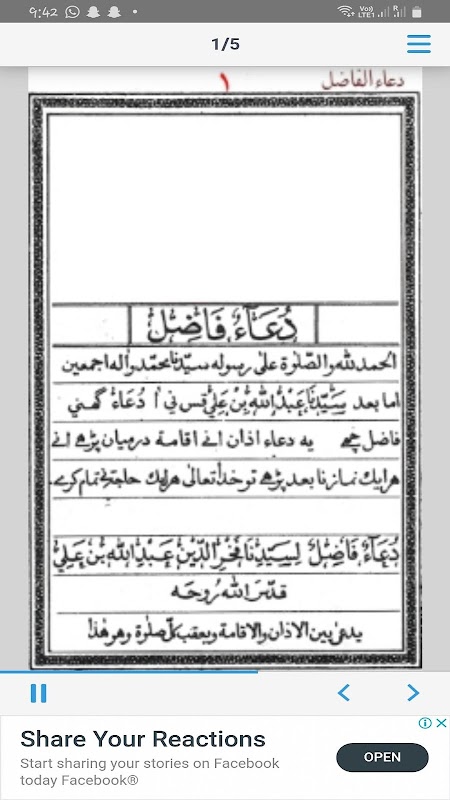 9:42
Vo)) LTE1 R
1/5
١ دعاء الفاضل
دُعَاءُ فَاضِلْ
الحمد لله والصّلوة على رسوله سيّدنا محمّد واله اجمعين
اما بعد سَيّدِنَا عَبْدُ اللّٰه بْن عَلِي قس ني ا دُعَاءْ گهني
فاضل چھے يه دعاء اذان انے اقامة درميان پڑھے انے
هر ايك نماز نا بعد پڑھے تو خدا تعالى هر ايك حاجة تمام كرے
دُعَاءُ فَاضِلْ لِسَيّدِنَا فَخْرِ الدّين عَبْدِ اللّٰه بْن عَلِيّ
قدّسَ اللّٰه رُوحَه
يدعى بين الاذان والاقامة وبعقب كلّ صلوة وهو هٰذا
Share Your Reactions
Start sharing your stories on Facebook
today Facebook®
OPEN